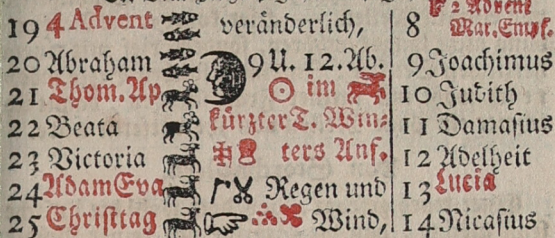 19 4 Advent veränderlich, 8 2 Advent
Mar. Empf.
20 Abraham 9 U. 12. Ab. 9 Joachimus
21 Thom. Ap ☉ im 10 Judith
22 Beata kürzter T. Win- 11 Damasius
23 Victoria ters Anf. 12 Adelheit
24 Adam Eva Regen und 13 Lucia
25 Christtag Wind, 14 Nicasius